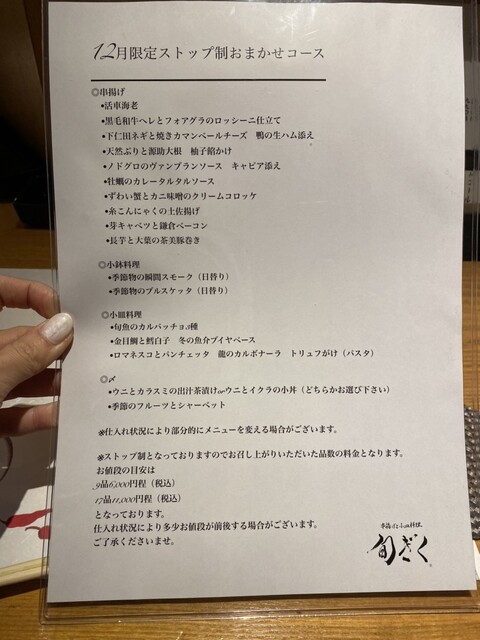 12月限定ストップ制おまかせコース
◎串揚げ
•活車海老
•黒毛和牛ヘレとフォアグラのロッシーニ仕立て
•下仁田ネギと焼きカマンベールチーズ　鴨の生ハム添え
•天然ぶりと源助大根　柚子餡かけ
•ノドグロのヴァンブランソース　キャビア添え
•牡蠣のカレータルタルソース
•ずわい蟹とカニ味噌のクリームコロッケ
•糸こんにゃくの土佐揚げ
•芽キャベツと鎌倉ベーコン
•長芋と大葉の茶美豚巻き
◎小鉢料理
•季節物の瞬間スモーク（日替り）
•季節物のブルスケッタ（日替り）
◎小皿料理
•旬魚のカルパッチョ3種
•金目鯛と鱈白子　冬の魚介ブイヤベース
•ロマネスコとパンチェッタ　龍のカルボナーラ　トリュフがけ（パスタ）
◎〆
•ウニとカラスミの出汁茶漬けorウニとイクラの小丼（どちらかお選び下さい）
•季節のフルーツとシャーベット
※仕入れ状況により部分的にメニューを変える場合がございます。
※ストップ制となっておりますのでお召し上がりいただいた品数の料金となります。
お値段の目安は
9品6,000円程（税込）
17品11,000円程（税込）
となっております。
仕入れ状況により多少お値段が前後する場合がございます。
ご了承くださいませ。
旬ざく